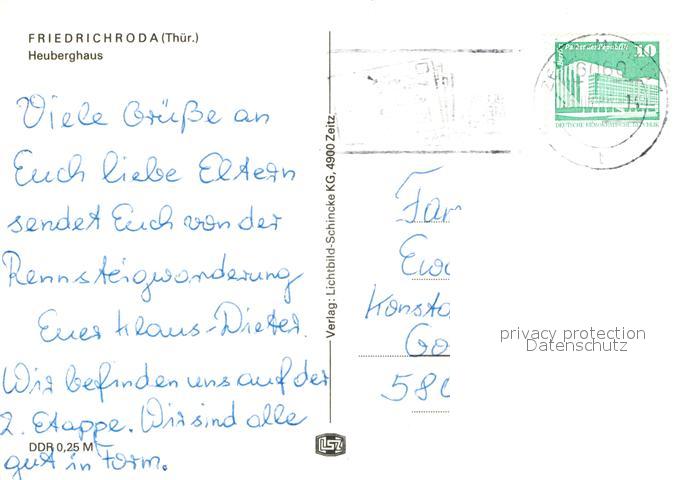 FRIEDRICHRODA (Thür.)
Heuberghaus
Viele Grüße an
Euch liebe Eltern
sendet Euch von der
Rennsteigwanderung
Euer Klaus-Dieter.
Wir befinden uns auf der
2. Etappe. Wir sind alle
gut in Form.
DDR 0,25 M
Verlag: Lichtbild-Schincke KG, 4900 Zeitz
LSZ
Palast der Republik 10
DEUTSCHE DEMOKRATISCHE REPUBLIK
Fam
Ewa
Konsta
Go
580
privacy protection
Datenschutz